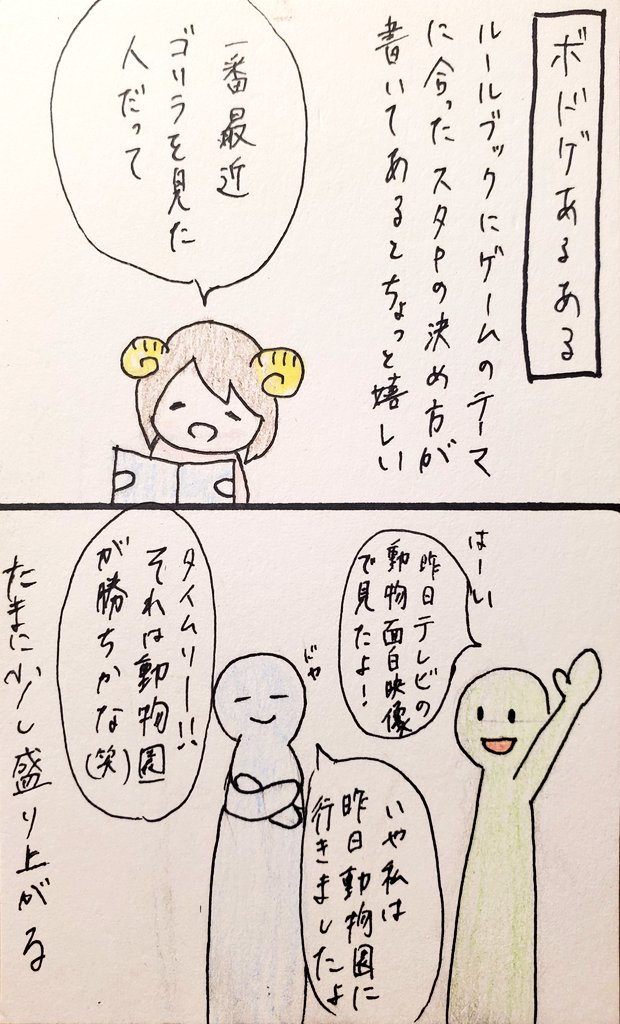 ボドゲあるある
ルールブックにゲームのテーマ
に合ったスタPの決め方が
書いてあるとちょっと嬉しい
一番最近
ゴリラを見た
人だって
はーい
昨日テレビの
動物面白映像
で見たよ!
いや私は
昨日動物園に
行きましたよ
ドヤ
タイムリー!!
それは動物園
が勝ちかな(笑)
たまに少し盛り上がる